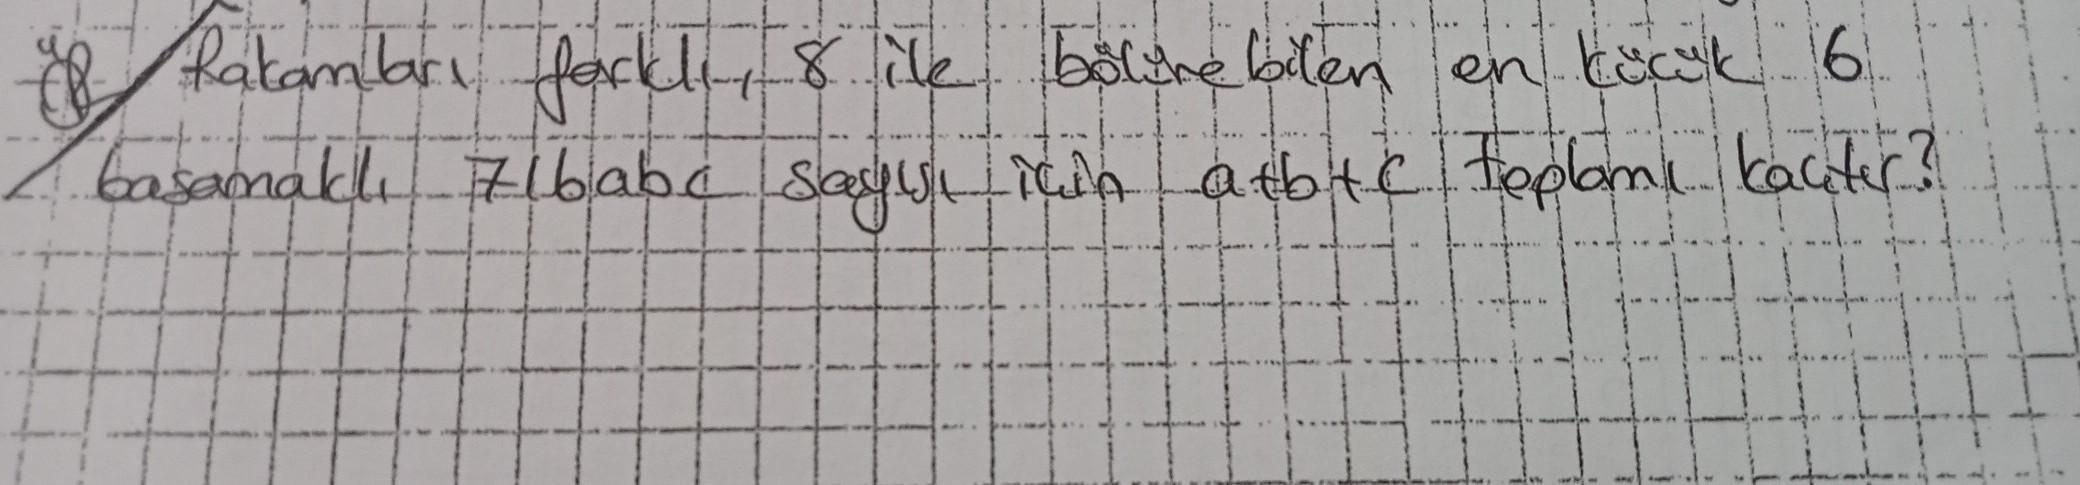 Rakamları farklı, 8 ile bölünebilen en küçük 6
basamaklı 716abc sayısı için a+b+c toplamı kaçtır?